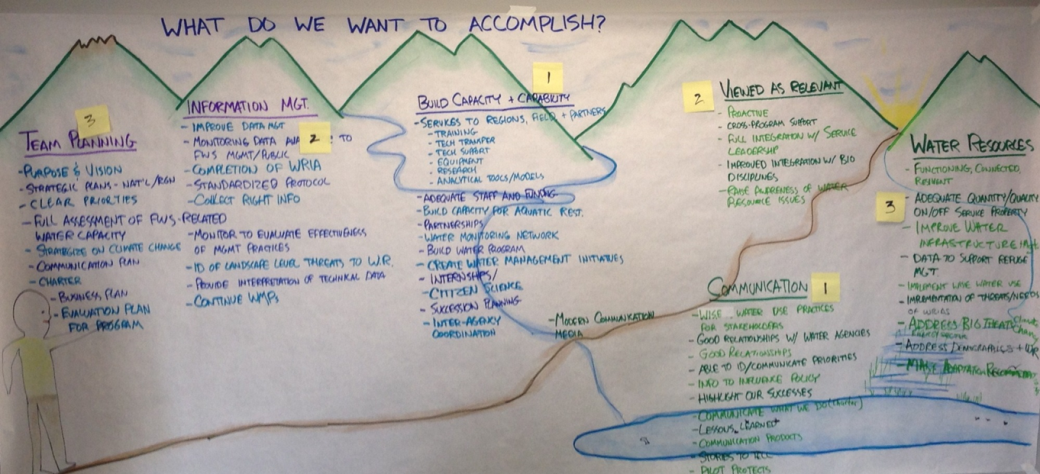 WHAT DO WE WANT TO ACCOMPLISH?
3
TEAM PLANNING
- PURPOSE & VISION
- STRATEGIC PLANS - NAT'L/RGN
- CLEAR PRIORITIES
- FULL ASSESSMENT OF FWS-RELATED
WATER CAPACITY
- STRATEGIZE ON CLIMATE CHANGE
- COMMUNICATION PLAN
- CHARTER
- BUSINESS PLAN
- EVALUATION PLAN
FOR PROGRAM
INFORMATION MGT.
2
- IMPROVE DATA MGT
- MONITORING DATA TO
FWS MGMT/PUBLIC
- COMPLETION OF WRIA
- STANDARDIZED PROTOCOL
- COLLECT RIGHT INFO
- MONITOR TO EVALUATE EFFECTIVENESS
OF MGMT PRACTICES
- ID OF LANDSCAPE LEVEL THREATS TO W.R.
- PROVIDE INTERPRETATION OF TECHNICAL DATA
- CONTINUE WMPs
1
BUILD CAPACITY + CAPABILITY
- SERVICES TO REGIONS, FIELD + PARTNERS
- TRAINING
- TECH TRANSFER
- TECH SUPPORT
- EQUIPMENT
- RESEARCH
- ANALYTICAL TOOLS/MODELS
- ADEQUATE STAFF AND FUNDING
- BUILD CAPACITY FOR AQUATIC REST.
- PARTNERSHIPS
- WATER MONITORING NETWORK
- BUILD WATER PROGRAM
- CREATE WATER MANAGEMENT INITIATIVES
- INTERNSHIPS/
CITIZEN SCIENCE
- SUCCESSION PLANNING
- INTER-AGENCY
COORDINATION
2
VIEWED AS RELEVANT
- PROACTIVE
- CROSS-PROGRAM SUPPORT
- FULL INTEGRATION W/ SERVICE
LEADERSHIP
- IMPROVED INTEGRATION W/ BIO
DISCIPLINES
- RAISE AWARENESS OF WATER
RESOURCE ISSUES
COMMUNICATION 1
- MODERN COMMUNICATION
MEDIA
- WISE - WATER USE PRACTICES
FOR STAKEHOLDERS
- GOOD RELATIONSHIPS W/ WATER AGENCIES
- GOOD RELATIONSHIPS
- ABLE TO ID/COMMUNICATE PRIORITIES
- INFO TO INFLUENCE POLICY
- HIGHLIGHT OUR SUCCESSES
- COMMUNICATE WHAT WE DO
- LESSONS LEARNED
- COMMUNICATION PRODUCTS
- STORIES TO TELL
- PILOT PROJECTS
WATER RESOURCES
3
- FUNCTIONING, CONNECTED,
RESILIENT
- ADEQUATE QUANTITY/QUALITY
ON/OFF SERVICE PROPERTY
- IMPROVE WATER
INFRASTRUCTURE
- DATA TO SUPPORT REFUGE
MGT.
- IMPLEMENT WISE WATER USE
- IMPLEMENTATION OF THREATS/NEEDS
OF WRIAs
- ADDRESS BIG THREATS
- ADDRESS DEMOGRAPHICS +
- MAKE ADAPTATION